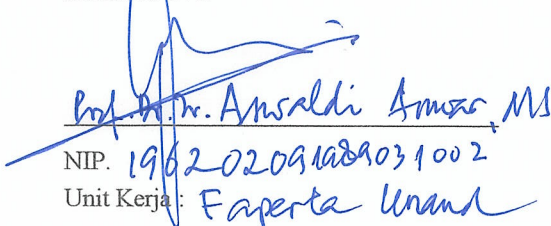 Prof. Dr. Ir. Aswaldi Anwar, MS
NIP. 196202091989031002
Unit Kerja : Faperta Unand